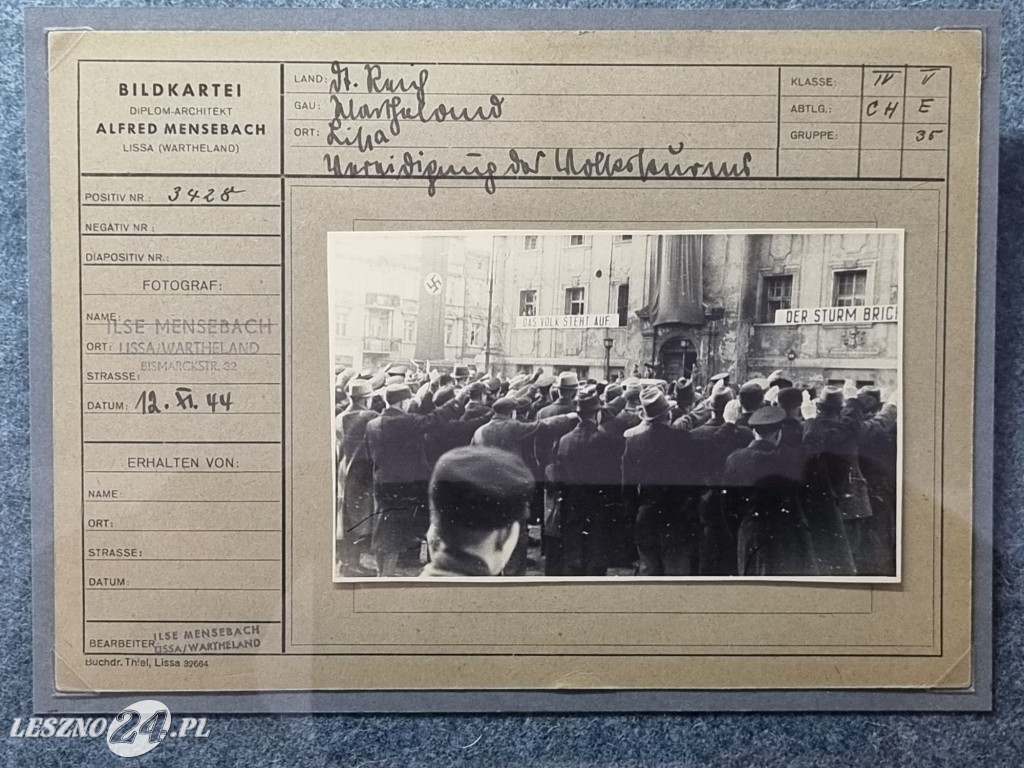 BILDKARTEI
DIPLOM-ARCHITEKT
ALFRED MENSEBACH
LISSA (WARTHELAND)
LAND: Dt. Reich
GAU: Wartheland
ORT: Lissa
Vereidigung des Volkssturms
KLASSE: IV V
ABTLG.: CH E
GRUPPE: 35
POSITIV NR.: 3428
NEGATIV NR.:
DIAPOSITIV NR.:
FOTOGRAF:
NAME: ILSE MENSEBACH
ORT: LISSA/WARTHELAND
STRASSE: BISMARCKSTR. 32
DATUM: 12. XI. 44
ERHALTEN VON:
NAME:
ORT:
STRASSE:
DATUM:
BEARBEITER: ILSE MENSEBACH
LISSA/WARTHELAND
Buchdr. Thiel, Lissa 32664
DAS VOLK STEHT AUF,
DER STURM BRICH
LESZNO24.PL